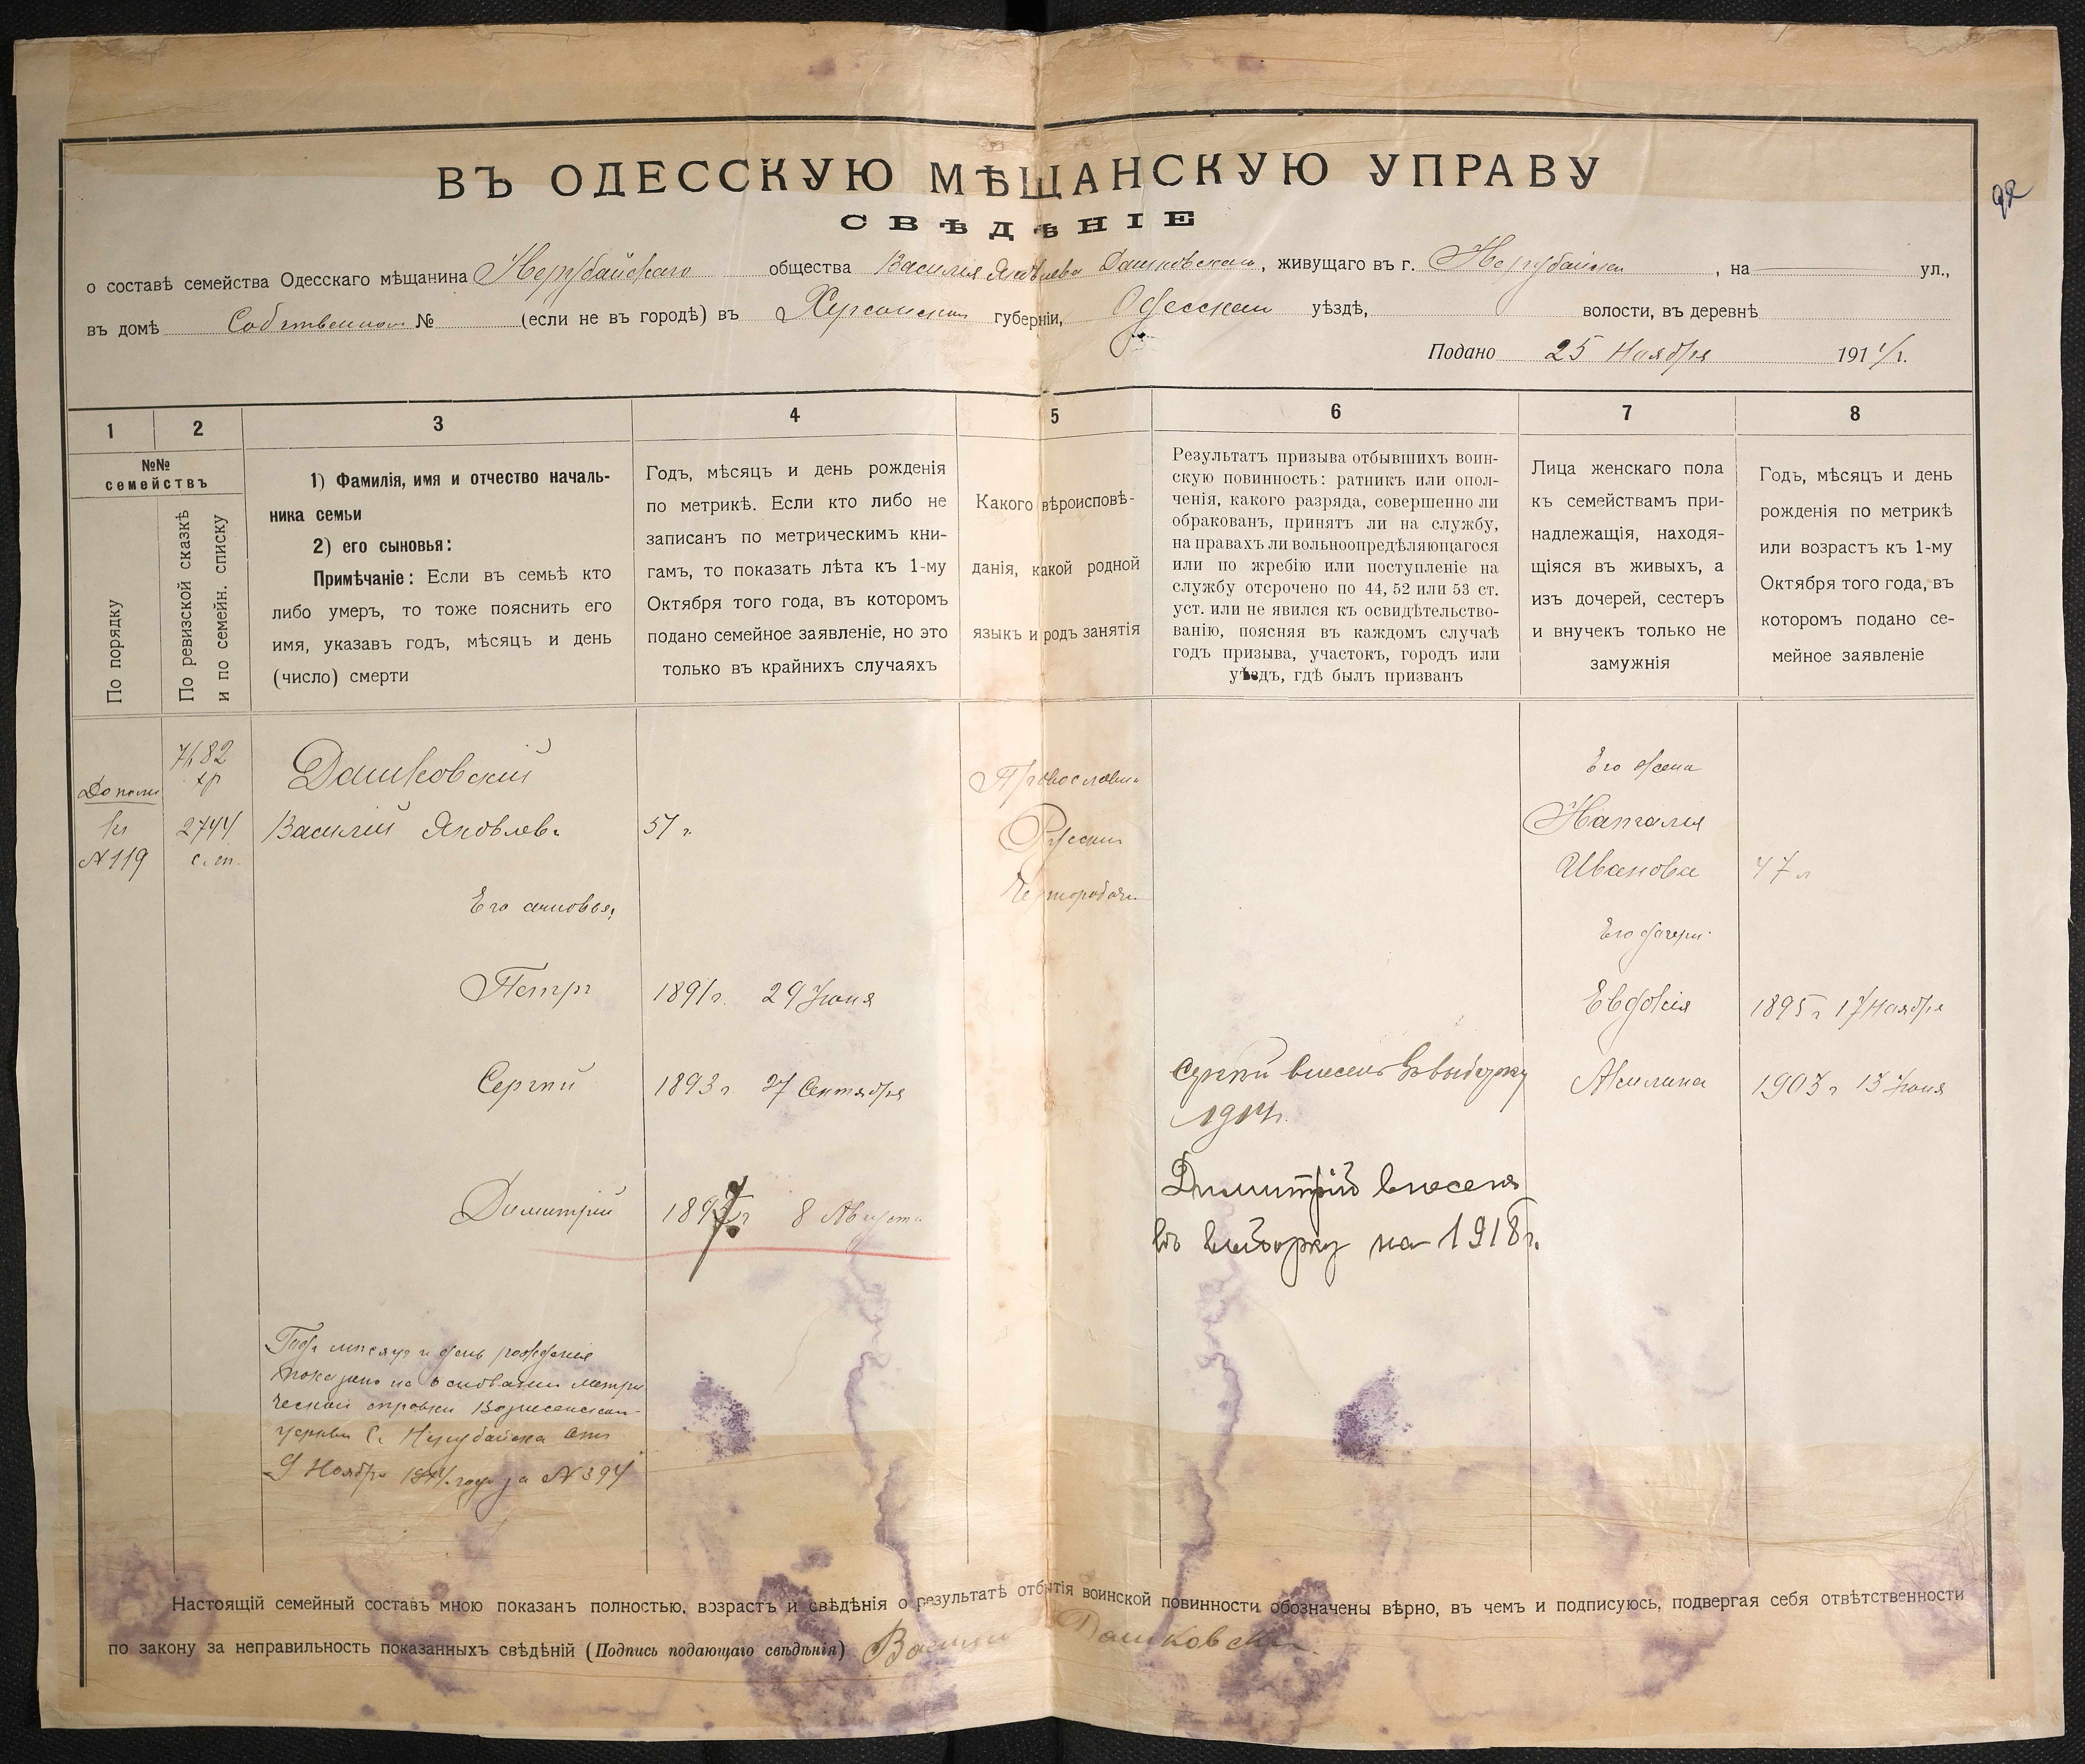 92
ВЪ ОДЕССКУЮ МѢЩАНСКУЮ УПРАВУ
СВѢДѢНІЕ
о составѣ семейства Одесскаго мѣщанина Нерубайскаго общества Василія Яковлева Дашковскаго, живущаго въ г. Нерубайски, на ул.,
въ домѣ Собственном № (если не въ городѣ) въ Херсонской губерніи, Одесском уѣздѣ, волости, въ деревнѣ
Подано 25 Ноября 1914 г.
1 2 3 4 5 6 7 8
№№ семействъ
По порядку
По ревизской сказкѣ
и по семейн. списку
1) Фамилія, имя и отчество началь-
ника семьи
2) его сыновья:
Примѣчаніе: Если въ семьѣ кто
либо умеръ, то тоже пояснить его
имя, указавъ годъ, мѣсяцъ и день
(число) смерти
Годъ, мѣсяцъ и день рожденія
по метрикѣ. Если кто либо не
записанъ по метрическимъ кни-
гамъ, то показать лѣта къ 1-му
Октября того года, въ которомъ
подано семейное заявленіе, но это
только въ крайнихъ случаяхъ
Какого вѣроисповѣ-
данія, какой родной
языкъ и родъ занятія
Результатъ призыва отбывшихъ воин-
скую повинность: ратникъ или опол-
ченія, какого разряда, совершенно ли
обракованъ, принятъ ли на службу,
на правахъ ли вольноопредѣляющагося
или по жребію или поступленіе на
службу отсрочено по 44, 52 или 53 ст.
уст. или не явился къ освидѣтельство-
ванію, поясняя въ каждомъ случаѣ
годъ призыва, участокъ, городъ или
уѣздъ, гдѣ былъ призванъ
Лица женскаго пола
къ семействамъ при-
надлежащія, находя-
щіяся въ живыхъ, а
изъ дочерей, сестеръ
и внучекъ только не
замужнія
Годъ, мѣсяцъ и день
рожденія по метрикѣ
или возрастъ къ 1-му
Октября того года, въ
которомъ подано се-
мейное заявленіе
7482
Дашковский
Православн
Его жена
2744
Василий Яковлев
57 г.
Русский
Наталия
№ 119
с. сп.
Иванова 47 л
Его сыновья:
Его дочери
Петр 1891 г. 29 Июня
Евдокия 1895 г 17 Ноября
Сергий 1893 г. 27 Сентября
Сергий внесен в выборку
1914 г.
Акилина 1903 г 13 Июня
Димитрий 1897 г 8 Августа
Димитрій внесенъ
въ выборку на 1918 г.
Год месяц и день рождения
показано на основании метри
ческой справки Вознесенской
церкви С. Нерубайска от
9 Ноября 1914 года за № 394
Настоящій семейный составъ мною показанъ полностью, возрастъ и свѣдѣнія о результатѣ отбытія воинской повинности обозначены вѣрно, въ чемъ и подписуюсь, подвергая себя отвѣтственности
по закону за неправильность показанныхъ свѣдѣній (Подпись подающаго свѣдѣнія) Василий Дашковски